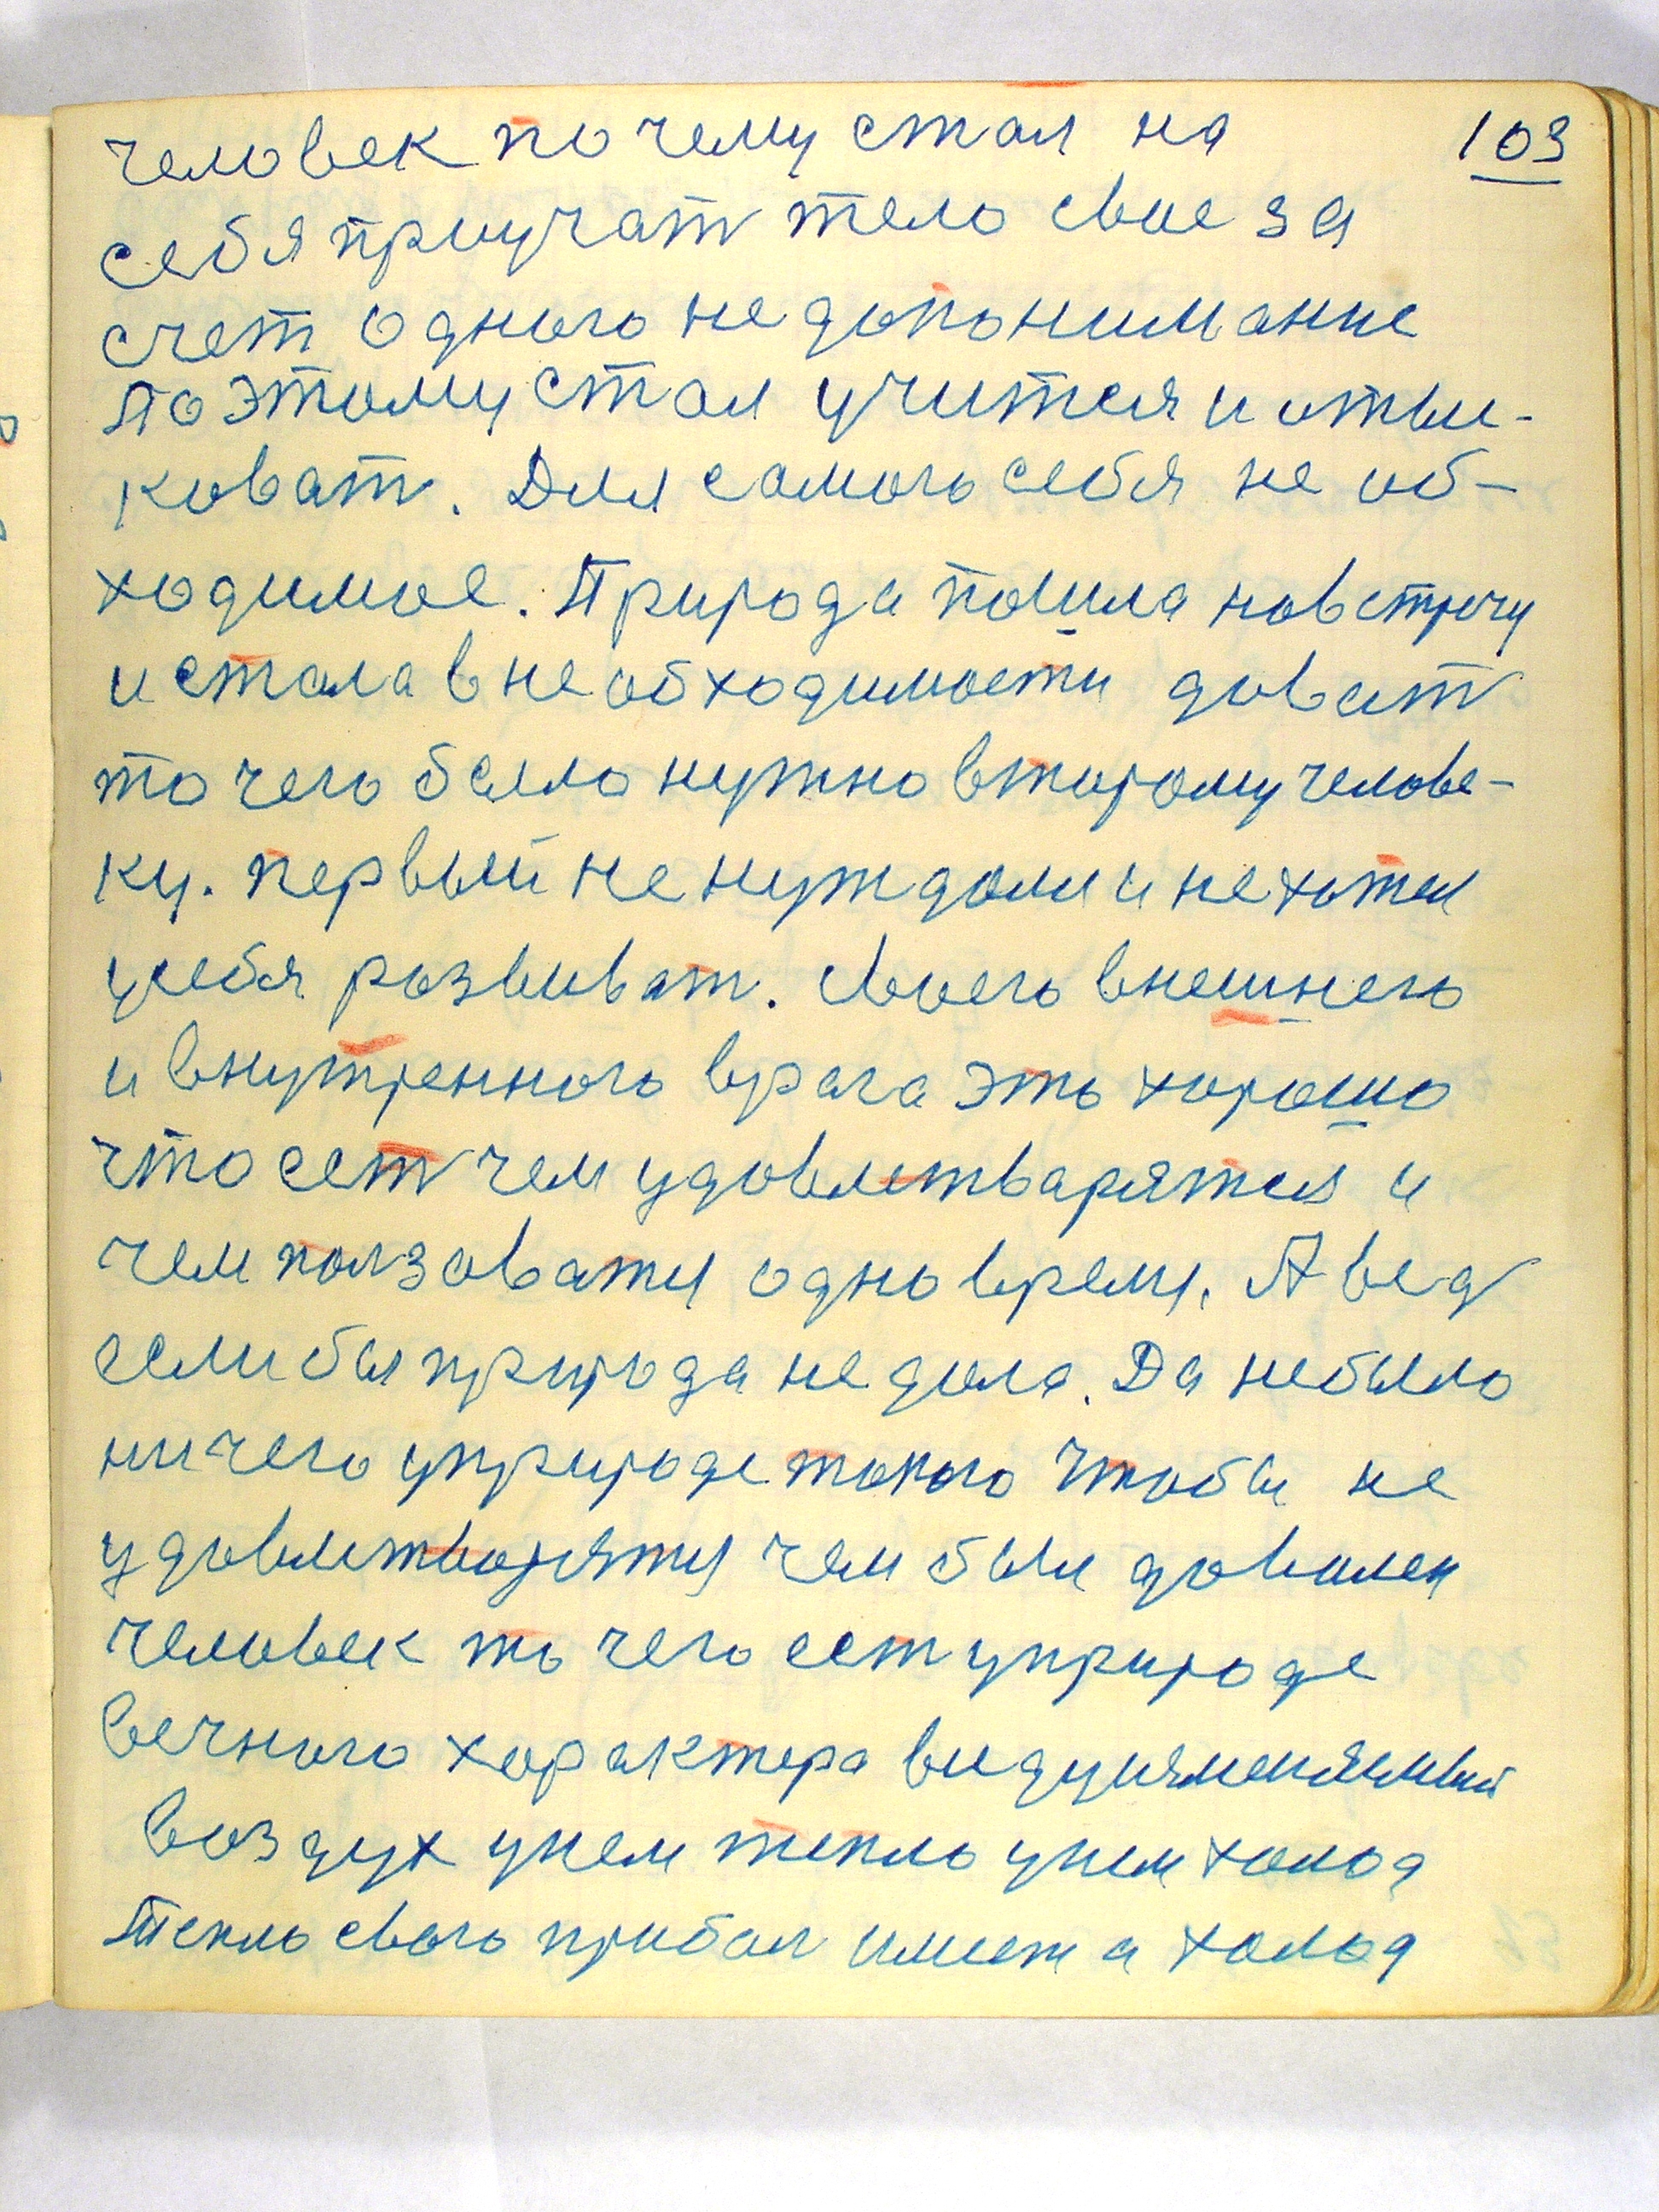 человек почему стал на
103
себя приучат тело свое за
счет одного недопонимание
поэтому стал учится и отыи-
коват. Для самого себя не об-
ходимое. Природа пошла новстречу
и стала в необходимости доват
то чего было нужно второму челове-
ку. первый не нуждолы и не хотел
у себя розвиват. Своего внешнего
и внутренного врага это хорошо
что сет чем удовлетварятся и
чем ползоватя одно время. А вед
если бы природа не дола. Да небыло
ничего уприроде токого чтобы не
удовлетворятя чем был доволен
человек то чего ест уприроде
вечного характера
воздух унем тепло унем холод
Тепло свого прибол имеет а холод